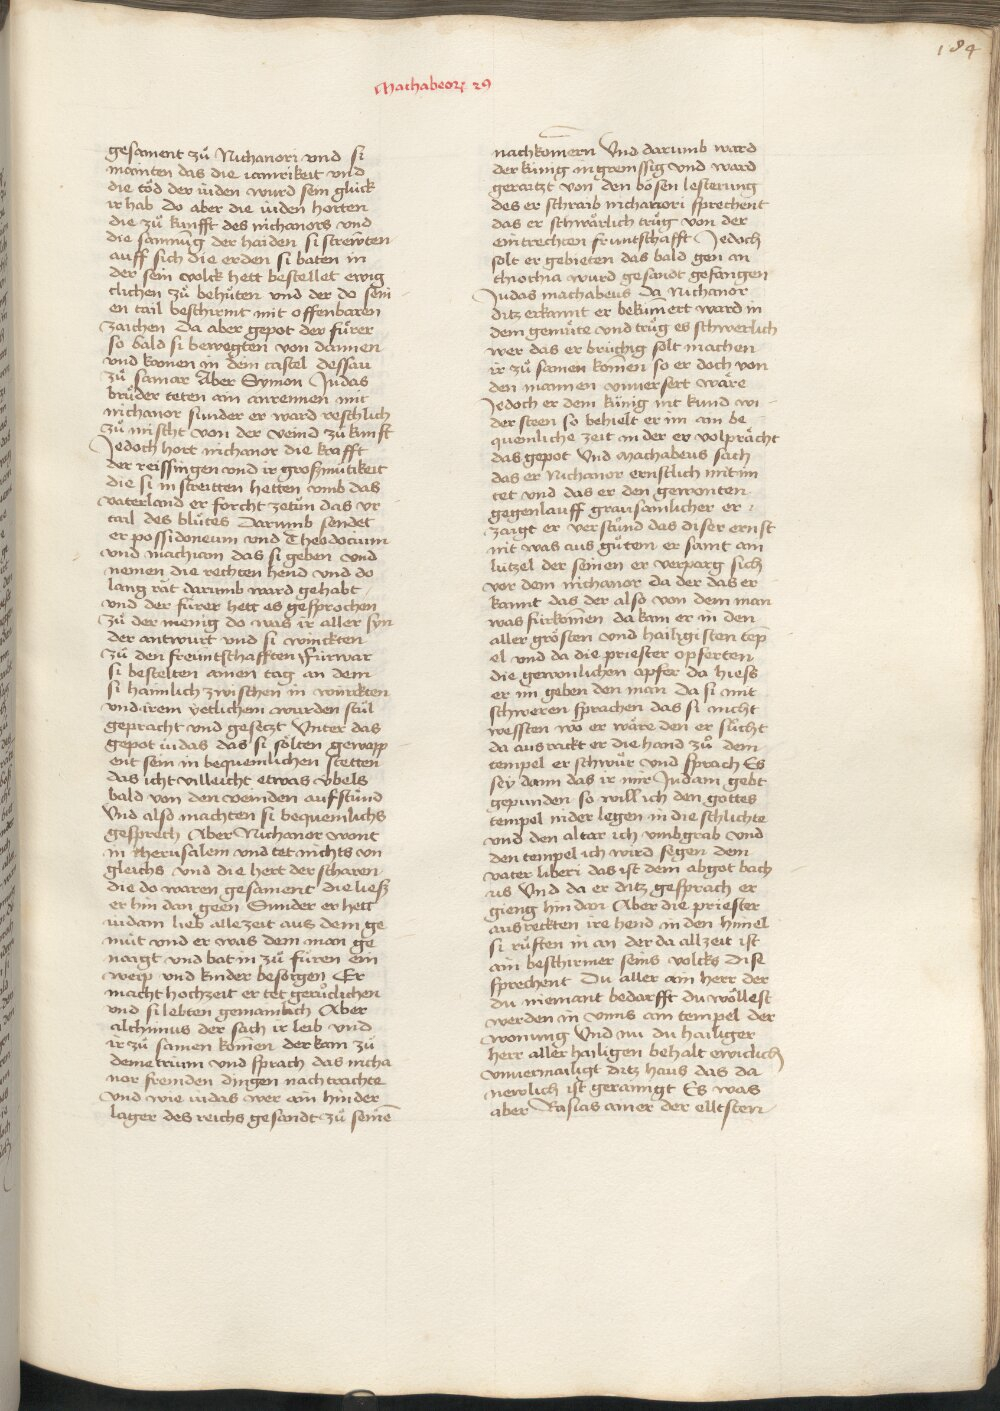 184
Machabeorꝝ 29
gesament zů Nichanori vnd si
mainten das die iamrikeit vnd
die töd der iuden wurd sein glück
ir hab Do aber die iuden horten
die zů kunfft des nichanors vnd
die samnūg der haiden si streẅten
auff sich die erden si baten in
der sein volck hett bestellet ewig
clichen zů behůten vnd der do sein
en tail beschirmt mit offenbaren
zaichen Da aber gepot der fürer
so bald si bewegten von dannen
vnd kamen in dem castel dessau
zů samar Aber Symon Judas
brůder teten ain anrennen mit
nichanor sunder er ward reschlich
zů mischt von der veind zů kunft
Jedoch hort nichanor die krafft
der reissingen vnd ir großmütikeit
die si in streitten hetten vmb das
vaterland er forcht zetůn das vr
tail des blůtes Darumb sendet
er possidoneum vnd Theodocium
vnd machiam das si geben vnd
nemen die rechten hend vnd do
lang rät darumb ward gehabt
vnd der fürer hett es gesprochen
zů der menig do was ir aller syn
der antwurt vnd si winckten
zů den freüntschafften Fürwar
si bestelten ainen tag an dem
si haimlich zwischen in würckten
vnd irem yetlichem wurden stůl
gepracht vnd gesetzt Vnter das
gepot iudas das si sölten gewapp
ent sein in bequemlichen stetten
das icht villeicht etwas vbels
bald von den veinden aufstůnd
Vnd also machten si bequemlichs
gesprech Aber Nichanor wont
in Jherusalem vnd tet nichts vn
gleichs vnd die hert der scharen
die do waren gesament die ließ
er hin dan geen Sunder er hett
iudam lieb allezeit aus dem ge
müt vnd er was dem man ge
naigt vnd bat in zů füren ein
weip vnd kinder besorgen Er
macht hochzeit er tet gerůclichen
vnd si lebten gemainlich Aber
alchimus der sach ir leib vnd
ir zů samen komen der kam zů
demetrium vnd sprach das nicha
nor fremden dingen nachtrachte
vnd wie iudas wer ain hinder
lager des reichs gesandt zů seinē
nachkomern Vnd darumb ward
der künig ingreinssig vnd ward
geraitzt von den bösen lesterung
des er schraib nichanori sprechent
das er schwärlich trůg von der
eintrechten fruntschafft Jedoch
solt er gebieten das bald gen an
thiochia wurd gesandt gefangen
Judas machabeus Da Nichanor
ditz erkannt er bekümert ward in
dem gemüte vnd trůg es schwerlich
wer das er brüchig solt machen
ir zů samen komen so er doch von
den mannen vnuersert wäre
Jedoch er dem künig nit kund wi
der steen so behielt er im ain be
quenliche zeit in der er volprächt
das gepot Vnd Machabeus sach
das er Nichanor ernstlich mit im
tet vnd das er den gewonten
gegenlauff grausamlicher er
zaigt er verstůnd das diser ernst
nit was aus gůtem er samt ain
lützel der seinen er verparg sich
vor dem nichanor da der das er
kannt das der also von dem man
was fürkomen da kam er in den
aller grösten vnd hailigisten temp
el vnd da die priester opferten
die gewonlichen opfer da hiess
er im geben den man Da si mit
schweren sprachen das si nicht
wessten wo er wäre den er sůcht
da ausrackt er die hand zů dem
tempel er schwůr vnd sprach Es
sey dann das ir mir Judam gebt
gepunden so will ich den gottes
tempel nider legen in die schlichte
vnd den altar ich vmbgrab vnd
den tempel ich wird segen dem
vater liberi das ist dem abgot bach
us Vnd da er ditz gesprach er
gieng hin dan Aber die priester
ausreckten ire hend in den himel
si růften in an der da allzeit ist
ain beschirmer seins volcks Dise
sprechent Du aller ain herr der
du niemant bedarfft du wöllest
werden in vnns ain tempel der
wonung Vnd nu du hailiger
herr aller hailigen behalt ewiclich
vnuermailigt ditz haus das da
newlich ist gerainigt Es was
aber Rasias ainer der elltsten